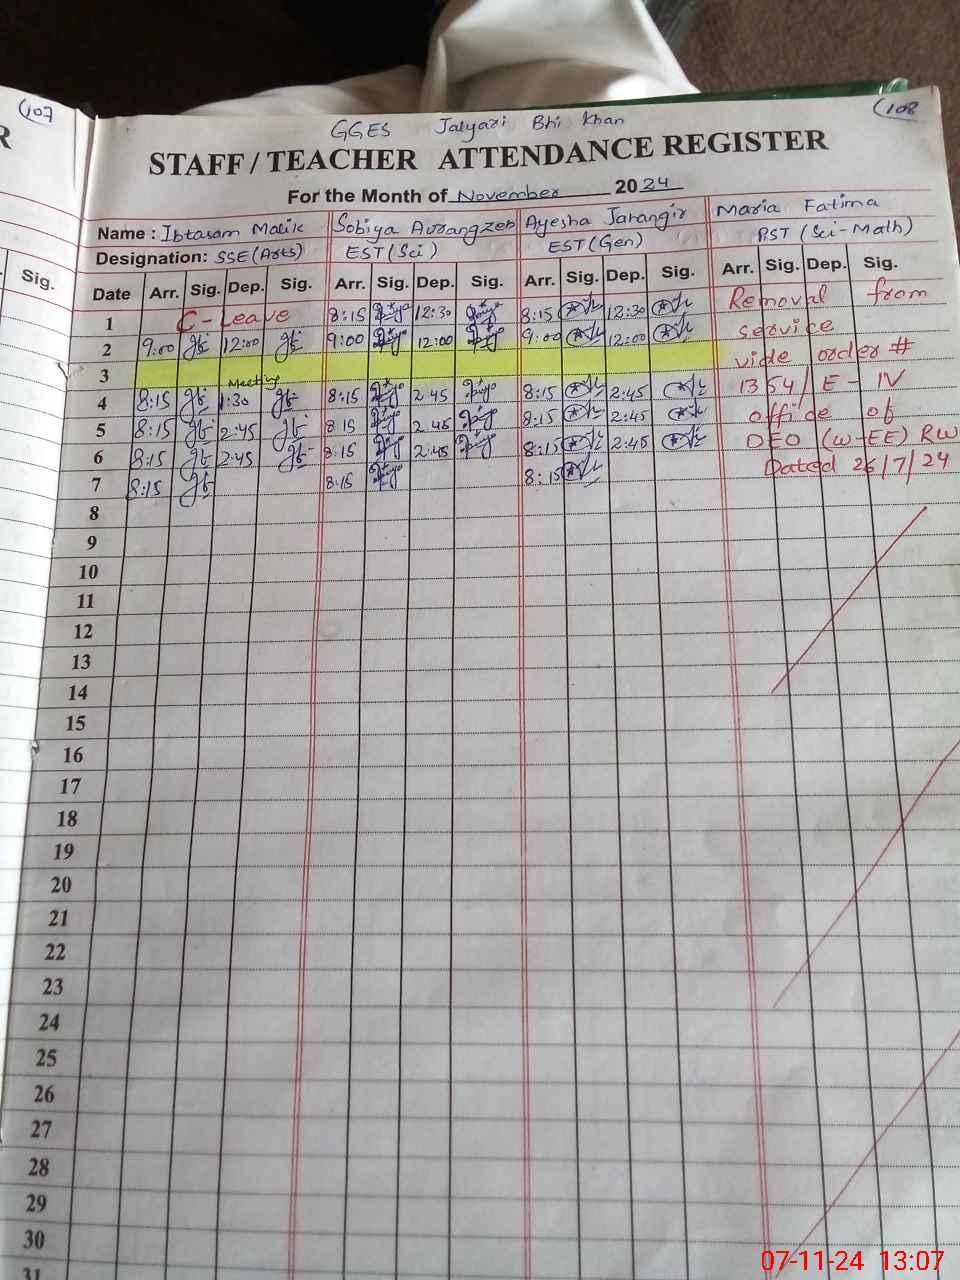 (107
(108
GGES Jalyari Bhi Khan
R
STAFF / TEACHER ATTENDANCE REGISTER
For the Month of November 2024
Name : Ibtasam Malik Sobiya Aurangzeb Ayesha Jahangir Maria Fatima
Designation: SSE (Arts) EST (Sci) EST (Gen) PST (Sci-Math)
Sig.
Date Arr. Sig. Dep. Sig. Arr. Sig. Dep. Sig. Arr. Sig. Dep. Sig. Arr. Sig. Dep. Sig.
1 C-Leave 8:15 12:30 8:15 12:30 Removal from
2 9:00 12:00 9:00 12:00 9:00 12:00 service
3 vide order #
Meeting
4 8:15 1:30 8:15 2:45 8:15 2:45 1354/E-IV
5 8:15 2:45 8 15 2 45 8:15 2:45 office of
6 8:15 2:45 8:15 2:45 8:15 2:45 DEO (W-EE) RW
7 8:15 8:15 8:15 Dated 26/7/24
8
9
10
11
12
13
14
15
16
17
18
19
20
21
22
23
24
25
26
27
28
29
30
31
07-11-24 13:07